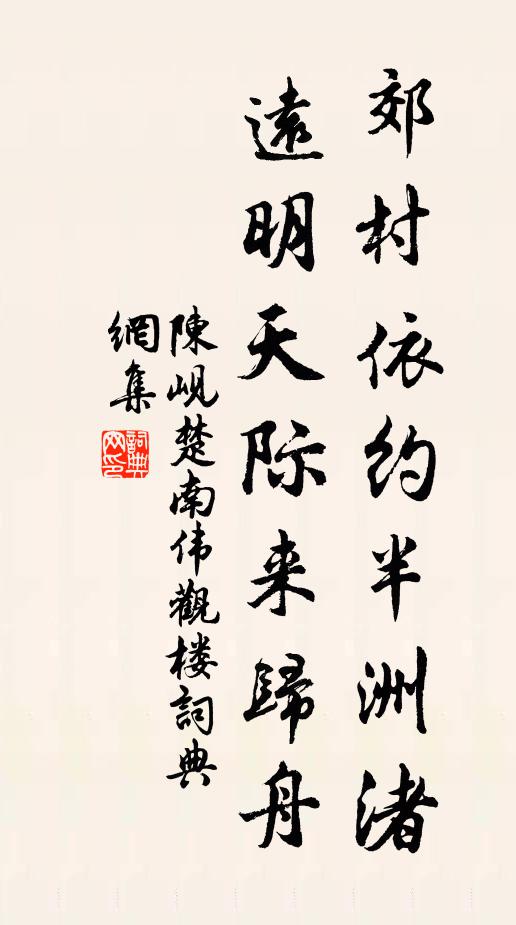 郊村依约半洲渚
遠明天际来歸舟
陳峴楚南伟觀楼詞典
網集
詞典网印